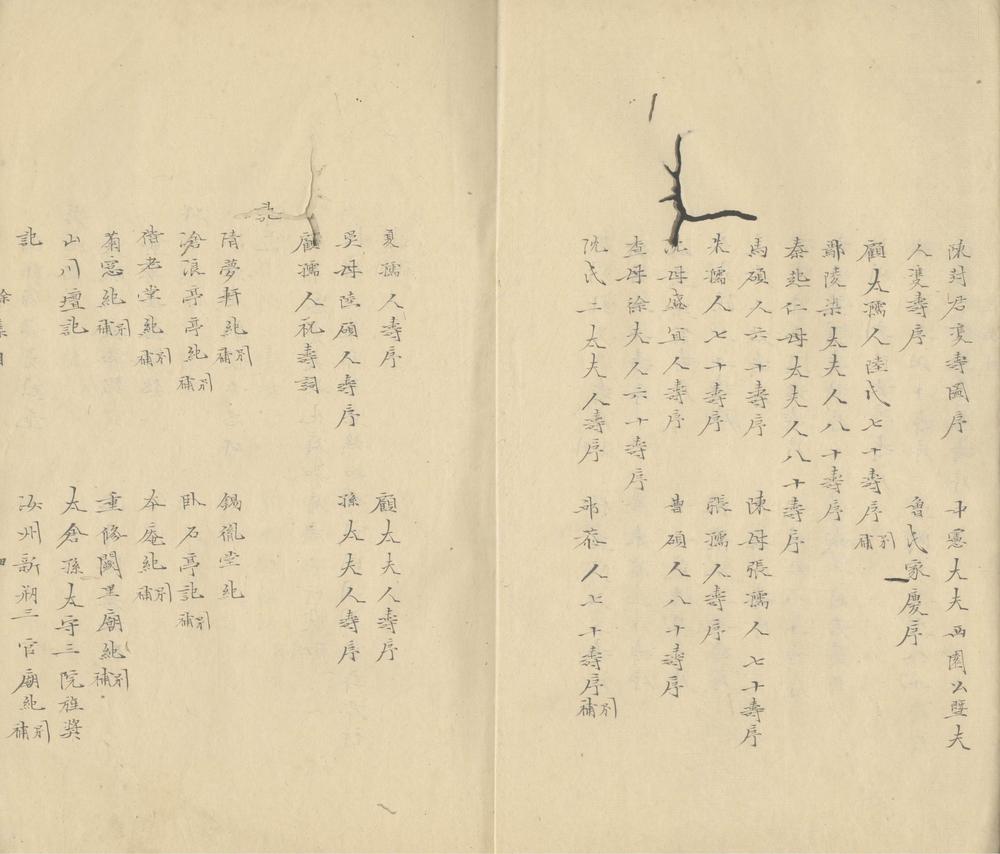 陳封君夀圖序 中憲大夫西園公曁夫
人雙壽序 魯氏家慶序
顧太孺人陸氏七十壽序別補
鄢陵梁太夫人八十壽序
秦起仁母太夫人八十壽序
馬碩人六十壽序 陳母張孺人七十壽序
朱孺人七十壽序 張孺人壽序
沈母盛宜人壽序 曹碩人八十壽序
查母徐夫人六十壽序
沈氏二太夫人壽序 人七十壽序別補
夏孺人壽序 顧太夫人壽序
吳母陸碩人壽序 孫太夫人壽序
顧孺人祝壽詞
記
隋夢軒紀別補 錫胤堂紀
滄浪亭紀別補 臥石亭記別補
偕老堂紀別補 本庵紀別補
菊窓紀別補 重修關王廟紀別補
山川壇記 太倉孫太守三院旌獎
記 汝州新剏三官廟紀別補